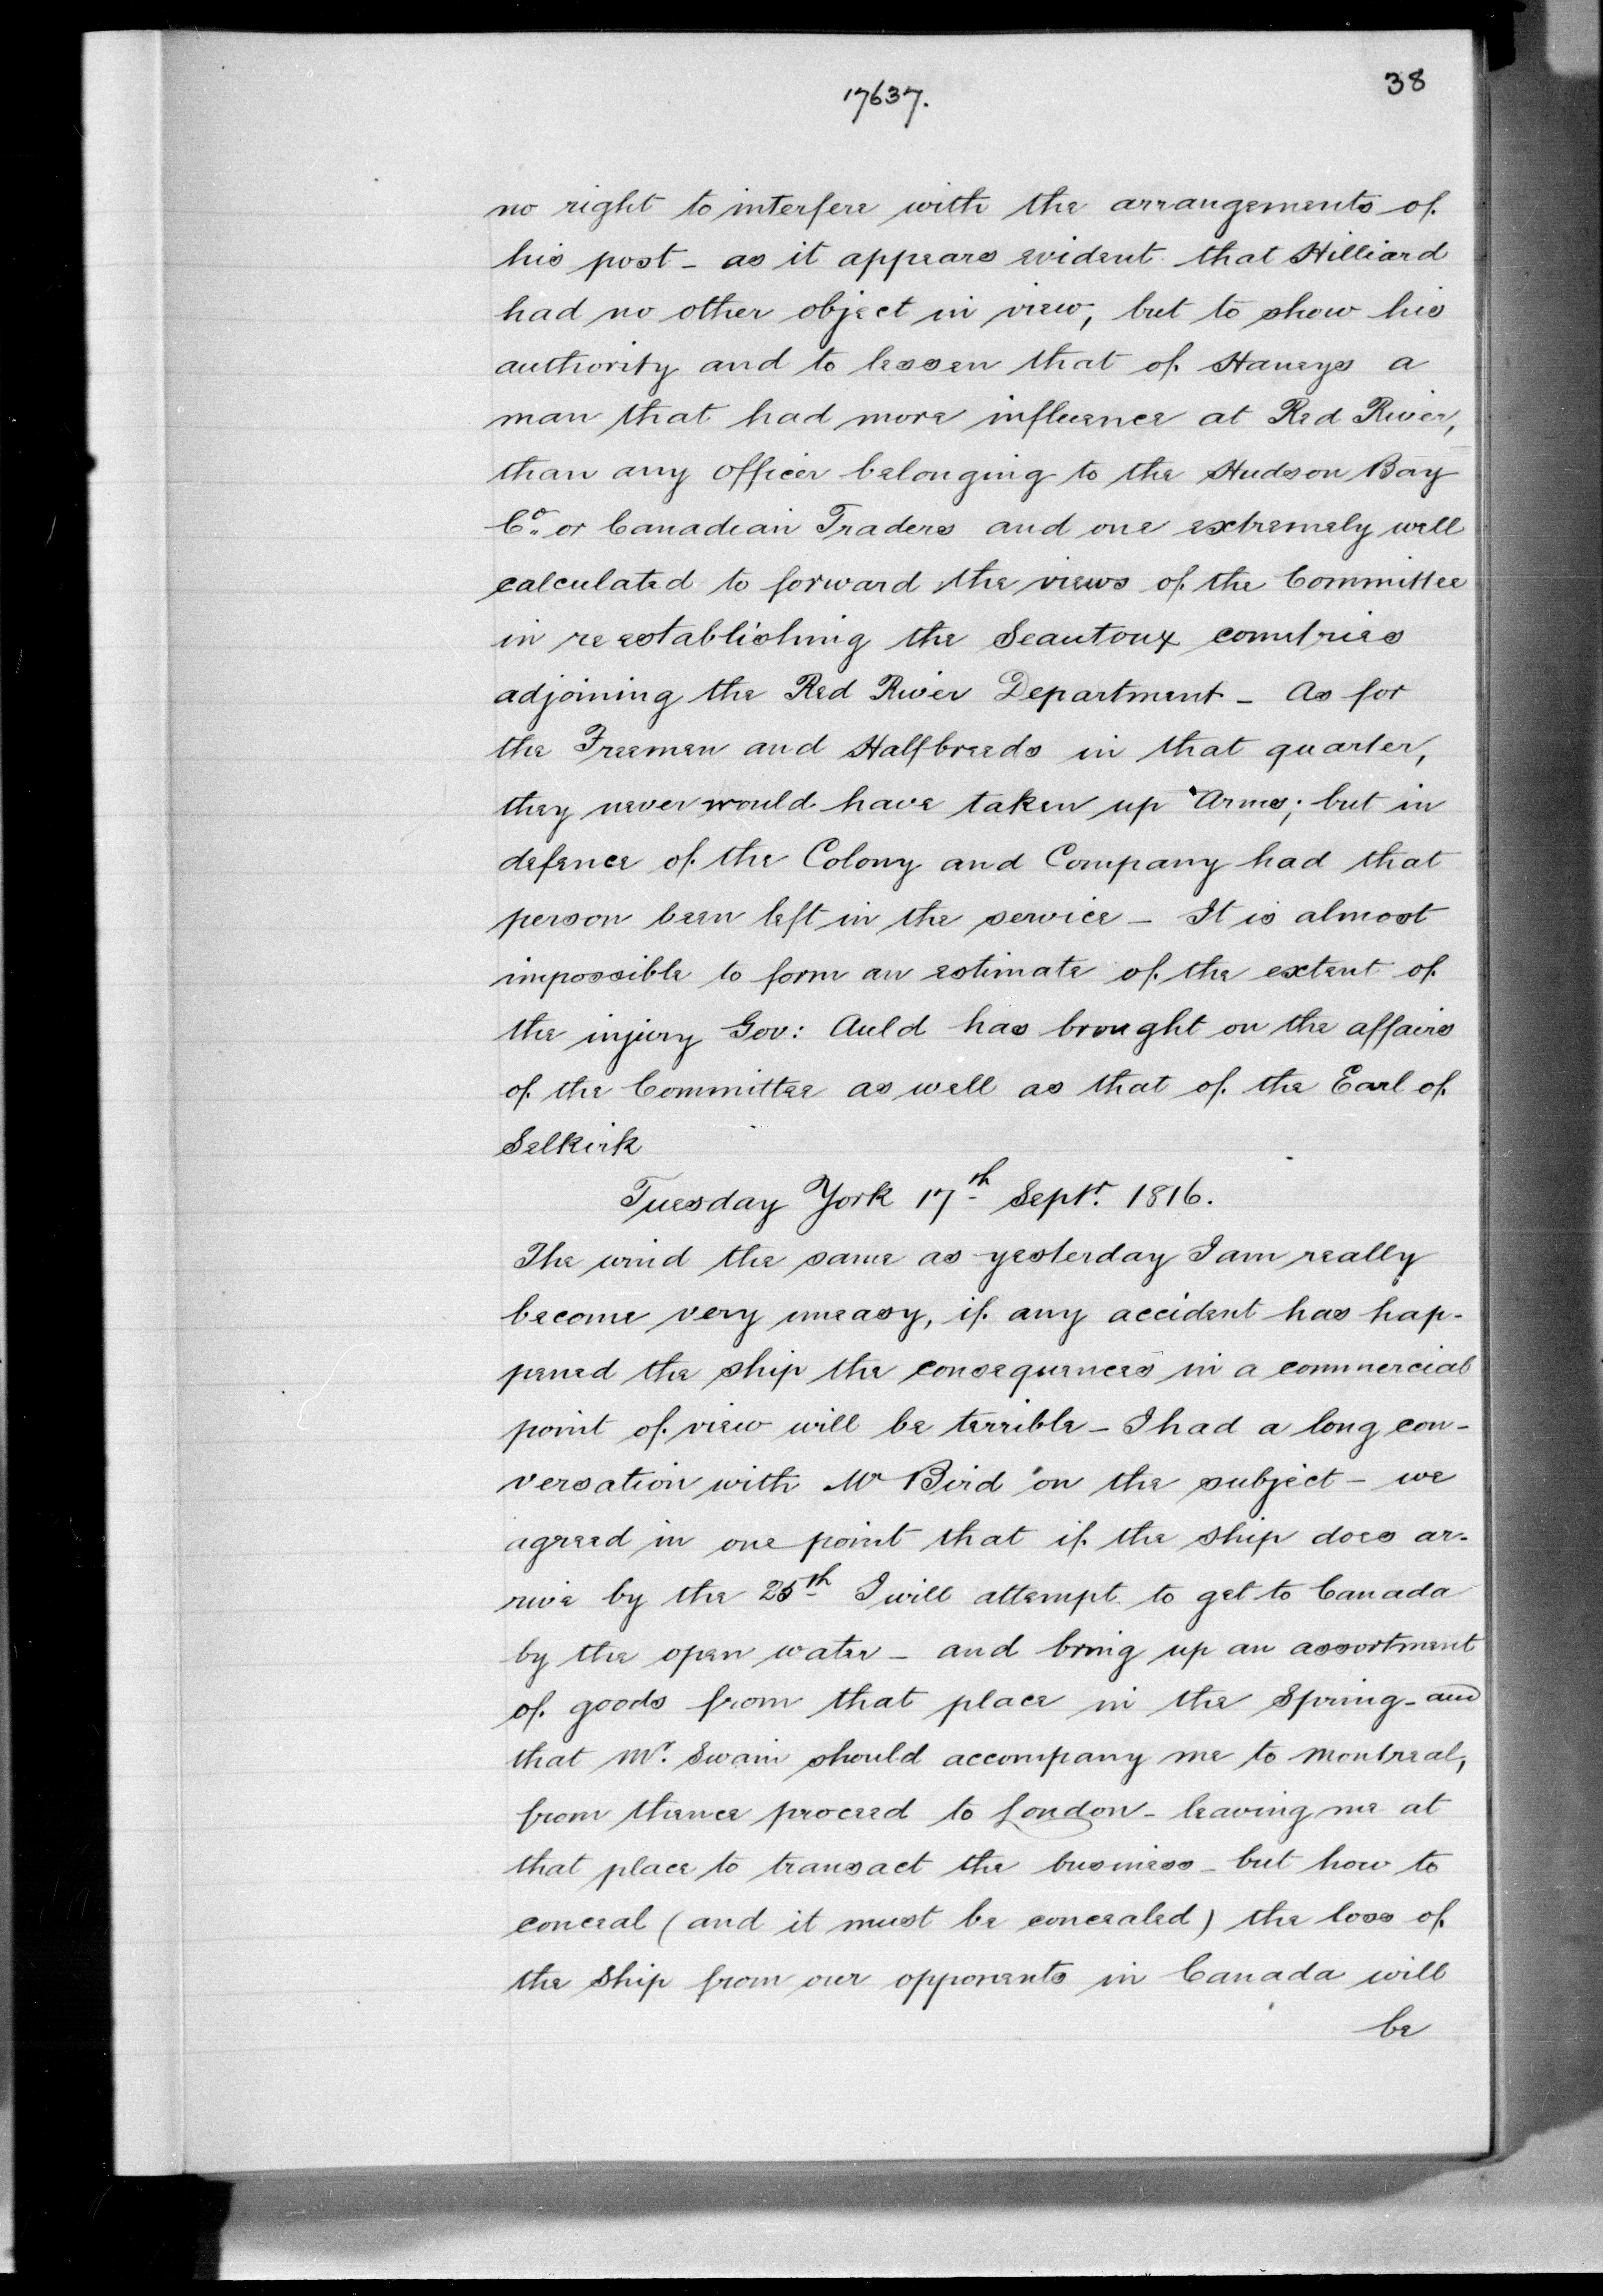 38
17637.
no right to interfere with the arrangements of
his post - as it appears evident that Hilliard
had no other object in view, but to show his
authority and to lessen that of Haneys a
man that had more influence at Red River,
than any officer belonging to the Hudson Bay
Co. or Canadian Traders and one extremely well
calculated to forward the views of the Committee
in reestablishing the Seautoux countries
adjoining the Red River Department - As for
the Freemen and Halfbreeds in that quarter,
they never would have taken up Arms; but in
defence of the Colony and Company had that
person been left in the service - It is almost
impossible to form an estimate of the extent of
the injury Gov: Auld has brought on the affairs
of the Committee as well as that of the Earl of
Selkirk
Tuesday York 17th Sept. 1816.
The wind the same as yesterday I am really
become very uneasy, if any accident has hap-
pened the ship the consequences in a commercial
point of view will be terrible - I had a long con-
versation with Mr Bird on the subject - we
agreed in one point that if the ship does ar-
rive by the 25th I will attempt to get to Canada
by the open water - and bring up an assortment
of goods from that place in the Spring - and
that Mr. Swain should accompany me to Montreal,
from thence proceed to London - leaving me at
that place to transact the business - but how to
conceal (and it must be concealed) the loss of
the Ship from our opponents in Canada will
be